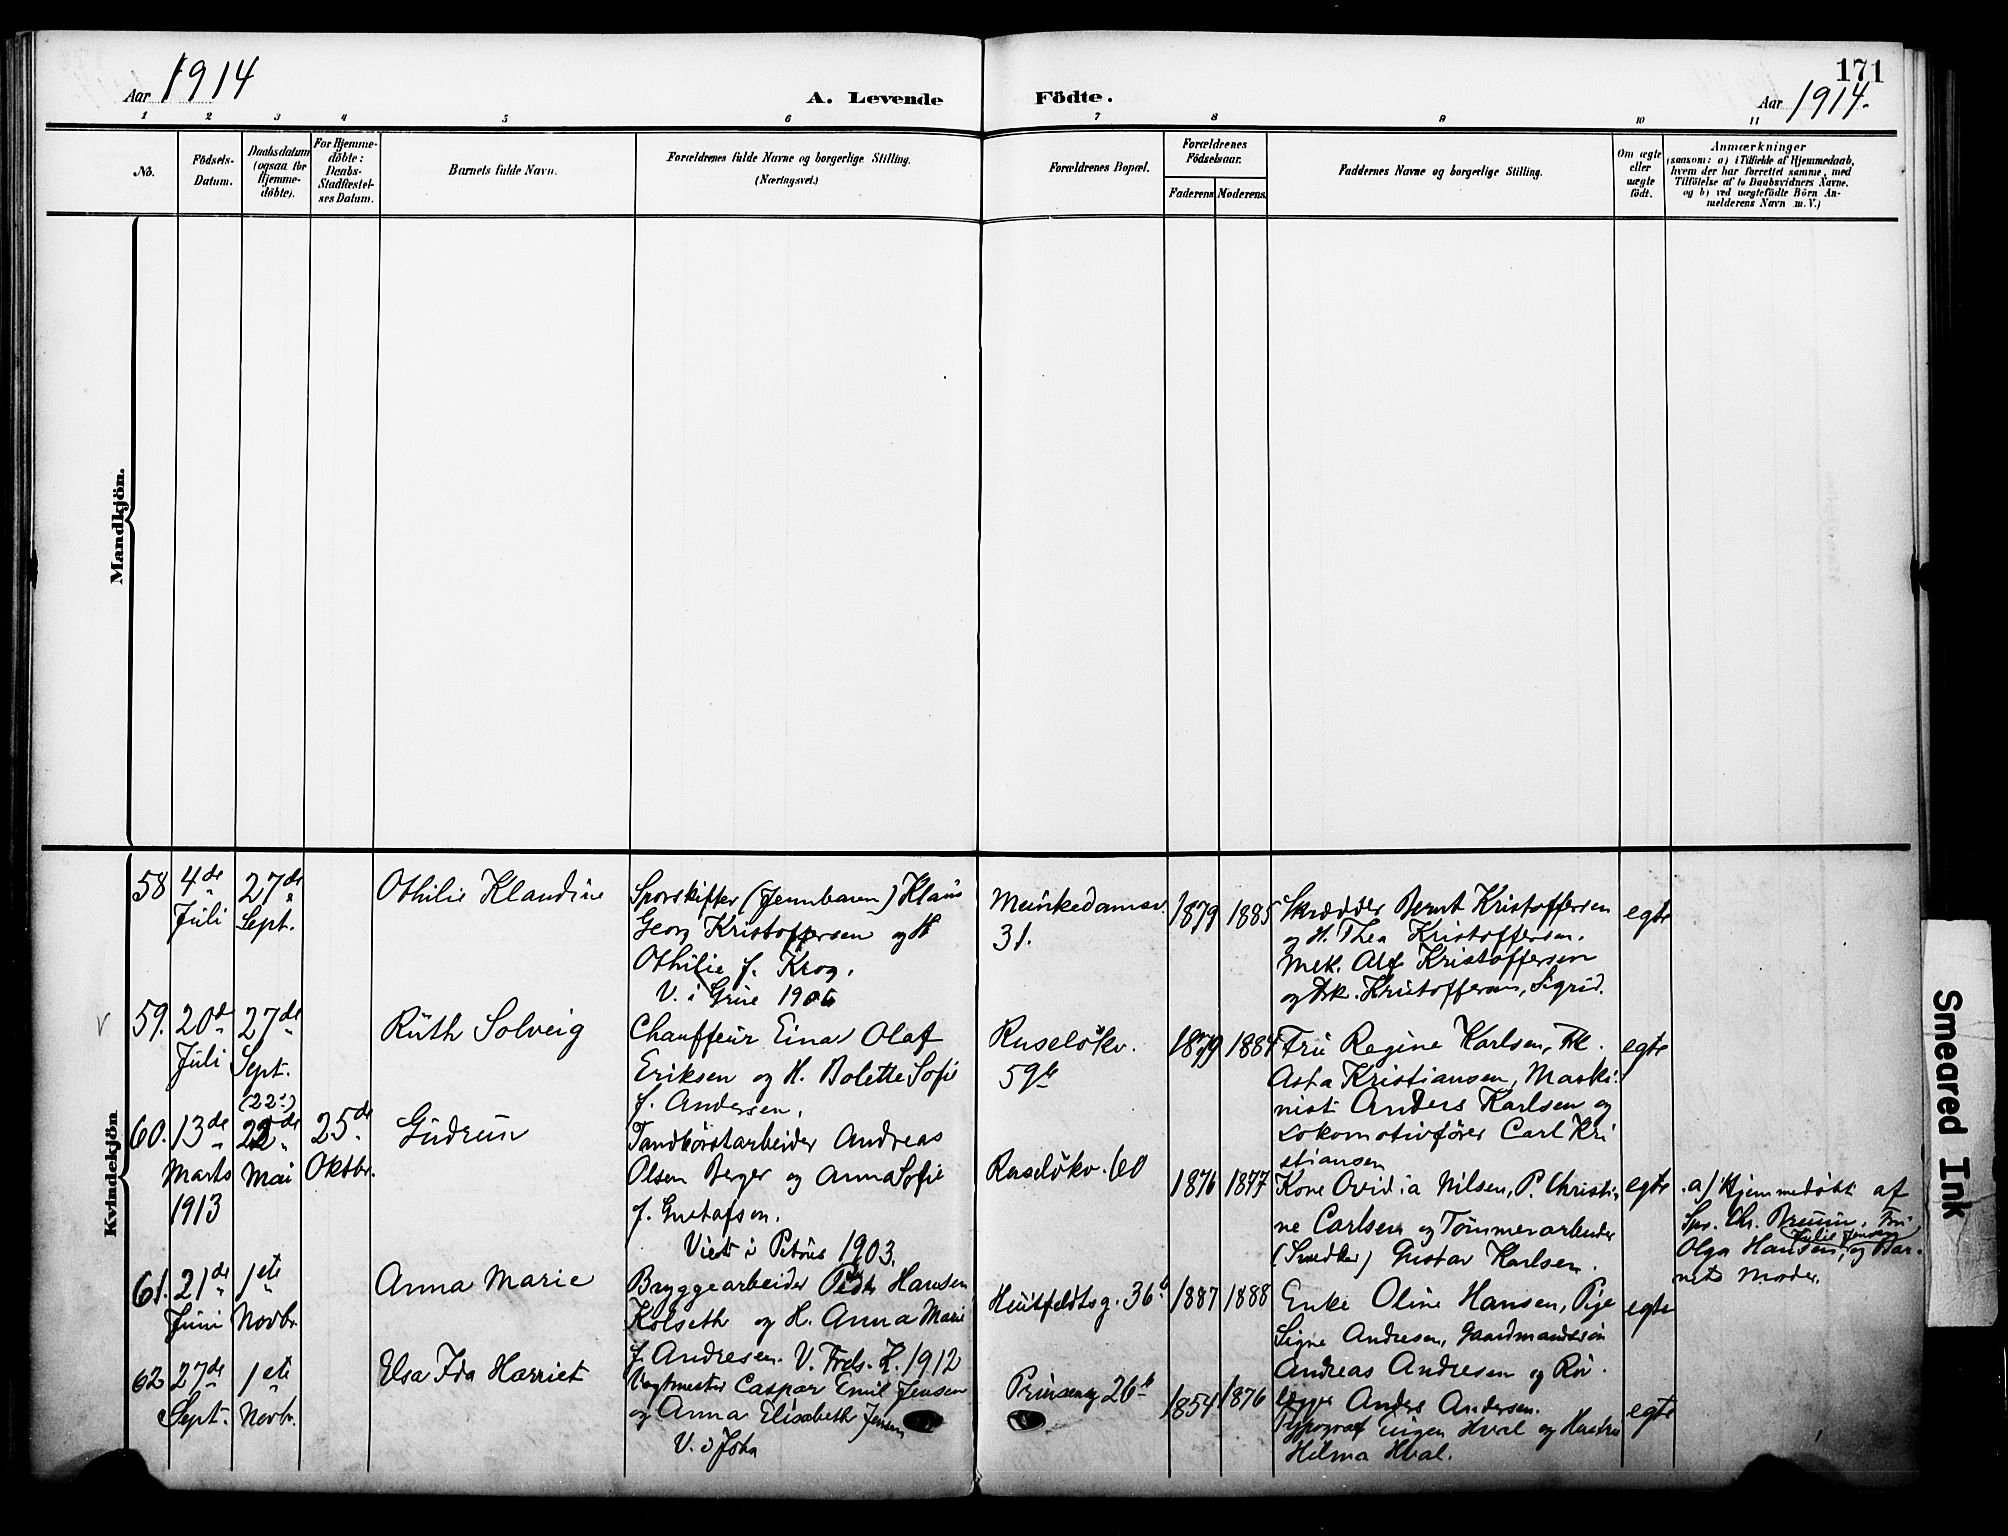 171
Aar 1914
A. Levende Födte.
Aar 1914.
1 2 3 4 5 6 7 8 9 10 11
No.
Födsels-
Datum.
Daabsdatum
(ogsaa for
Hjemme-
döbte).
For Hjemme-
döbte:
Daabs-
Stadfæstel-
ses Datum.
Barnets fulde Navn.
Forældrenes fulde Navne og borgerlige Stilling.
(Næringsvei.)
Forældrenes Bopæl.
Forældrenes
Födselsaar.
Faderens
Moderens.
Faddernes Navne og borgerlige Stilling.
Om ægte
eller
uægte
födt.
Anmærkninger
(saasom: a) i Tilfælde af Hjemmedaab,
hvem der har forrettet samme, med
Tilföielse af to Daabsvidners Navne.
og b) ved uægtefödte Börn An-
melderens Navn m. V.)
Mandkjön.
Kvindekjön
58
4de
Juli
27de
Sept.
Othilie Klandine
Sporskifter (Jernbanen) Klaus
Georg Kristoffersen og H
Othilie f. Krog.
V. i Grue 1906
Munkedamsv.
31.
1879
1885
Skrædder Bernt Kristoffersen
og H. Thea Kristoffersen.
Mek. Alf Kristoffersen
og Frk. Kristoffersen, Sigrid.
egte
V
59.
20de
Juli
27de
Sept.
Ruth Solveig
Chauffeur Einar Olaf
Eriksen og H. Bolette Sofie
f. Andersen.
Ruselökv.
59b
1879
1884
Fru Regine Karlsen, Frk.
Asta Kristiansen, Maski-
nist Anders Karlsen og
Lokomotivförer Carl Kri
stiansen
egte
60.
13de
Marts
1913
(22.)
22de
Mai
25de
Oktbr.
Gudrun
Tandbörstarbeider Andreas
Olsen Berger og Anna Sofie
f. Gustafson.
Viet i Petrus 1903.
Ruselökv. 60
1876
1877
Kone Ovidia Nilsen, P. Christi-
ne Carlsen og Tömmerarbeider
(Snedker) Gustav Karlsen.
egte
a) Hjemmedöbt af
Spr. Chr. Bruun. Fru
Julie Jensen
Olga Hansen, og Bar-
nets Moder.
61.
21de
Juni
1ste
Novbr.
Anna Marie
Bryggearbeider Peder Hansen
Kolseth og H. Anna Marie
f. Andresen. V. Freds. K. 1912
Huitfeldtsg. 36b
1887
1888
Enke Oline Hansen, Pige
Signe Andresen, Gaardmandssön
Andreas Andresen og Rör-
lægger Anders Andersen.
egte
62
27de
Sept.
1ste
Novbr.
Elsa Ida Harriet
Vagtmester Caspar Emil Jensen
og Anna Elisabeth Jensen
V. i Joha
Prinsensg 26b
1854
1876
Typograf Eugen Hval og Hustru
Hilma Hval.
egte
Smeared Ink